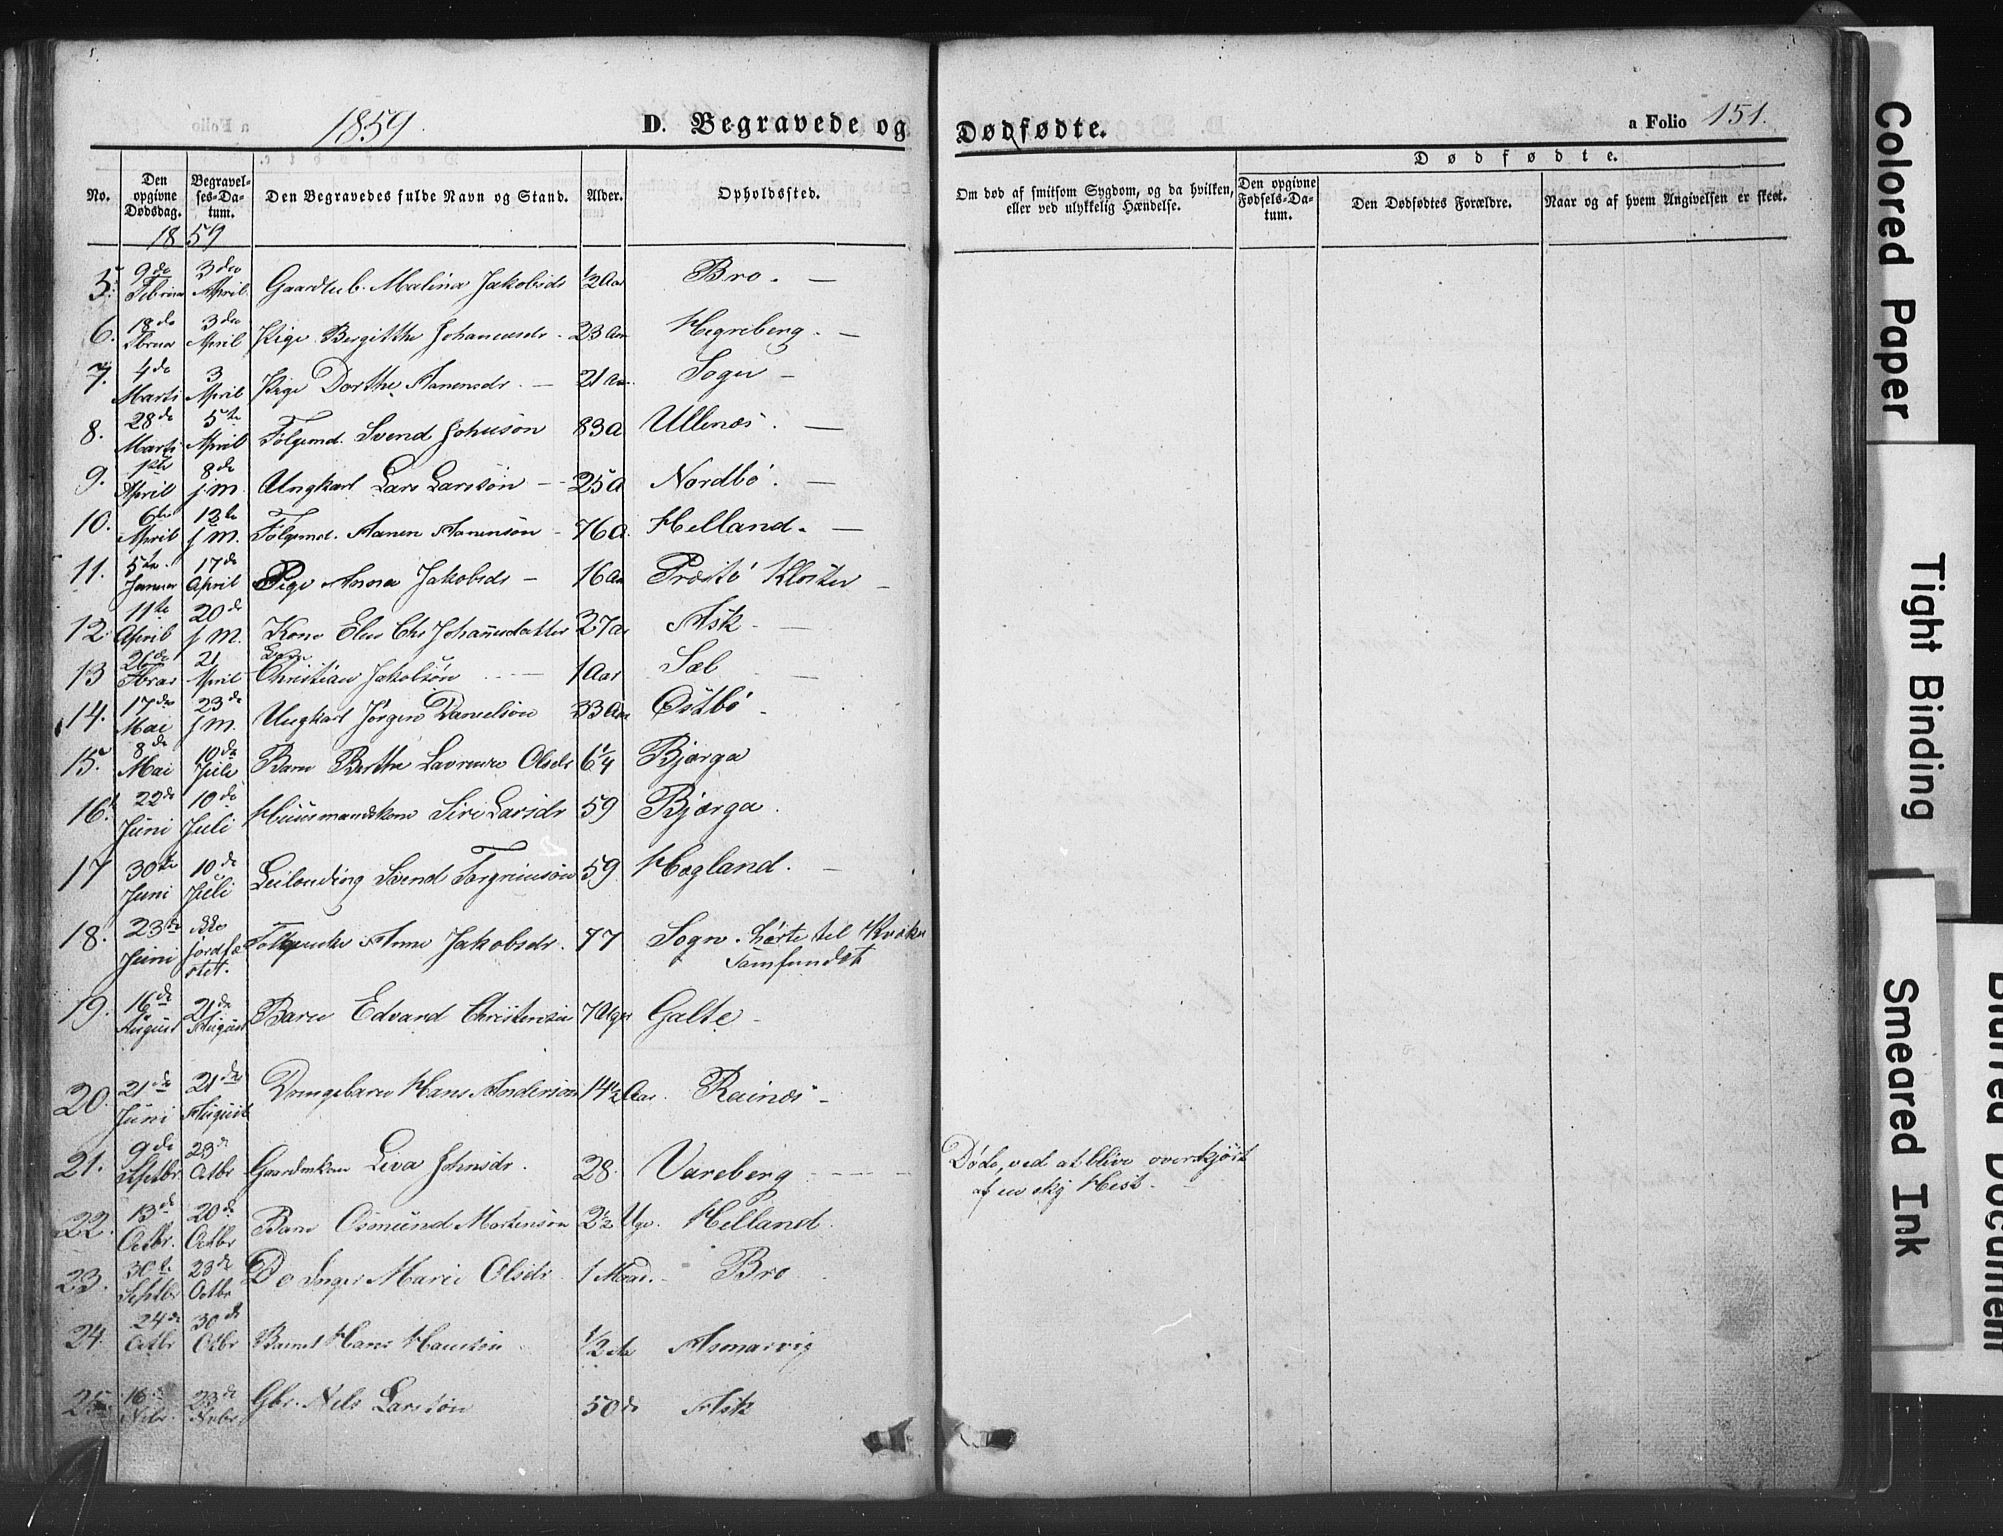 1859.
D. Begravede og Dødfødte.
a Folio 151.
No.
Den opgivne Dødsdag.
Begravelses-Datum.
Den Begravedes fulde Navn og Stand.
Alder.
Opholdssted.
Om død af smitsom Sygdom, og da hvilken, eller ved ulykkelig Hændelse.
Dødfødte.
Den opgivne Fødsels-Datum.
Den Dødfødtes Forældre.
Naar og af hvem Angivelsen er skeet.
1859
5. 9de 3die Malina Jakobsdr 1/2 Aar Bro. —
April
6. 18de 3die Pige Bergitthe Johannesdr. 23 Aar Hegreberg. —
April
7. 4de Marts 3 April Pige Dorthe Aanensdr. — 21 Aar Sogn —
8. 28de Marts 5te April Folgemd. Svend Johnsøn 83 A Ullenæs. —
9. 1ste April 8de j.M. Ungkarl Lars Larsøn — 25 A Nordbö. —
10. 6te April 13te j.M. Folgemd. Aanen Aanensøn — 76 A. Helland. —
11. 5te Januar 17de April Pige Anna Jakobsdr — 16 Aar Kloster —
12. 11te April 20de j.M. Kone Johannesdatter 27 Aar Ask. —
13 26de 21 April Barn Christian Jakobsøn — 1 Aar Sæl —
14. 17de Mai 23de j.M. Ungkarl Jørgen Danielsøn 33 Aar Östbö —
15. 8de Mai 10de Juli Barn Berthe Laurense Olsdr 6 1/4 Bjærga
16. 22de Juni 10de Juli Huusmandskone Siri Larsdr 59 Bjærga.
17 30te Juni 10de Juli Leilending Svend Torgrimsøn 59 Hogland. —
18. 23de Juni jordfæstet. Anne Jakobsdr. 77 Sogn. hørte til Kvæker
Samfundet
19. 16de August 21de August Barn Edvard Christensøn 7 Uger Galte —
20. 21de Juni 21de August Drengebarn Hans Andersøn 14 1/2 Aar. Rainæs —
21. 9de Septbr 23de Octbr Gaardmkone Liva Johnsdr. 28. Vareberg — Døde, ved at blive overkjørt
af en sky Hest.
22. 13de Octbr. 20de Octbr Barn Osmund Mortensøn 2 1/2 Uge. Helland.
23. 30te Septbr 23de Octbr Do Inger Marie Olsdr 1 Maad. — Bro
24. 24de Octbr 30de Octbr Hans Hansøn 1/2 Aar Asmarvig
25. 16de Nvbr. 23de Nvbr Gbr. Nels Larsøn 50 do Ask
Colored Paper
Tight Binding
Smeared Ink
Blurred Document